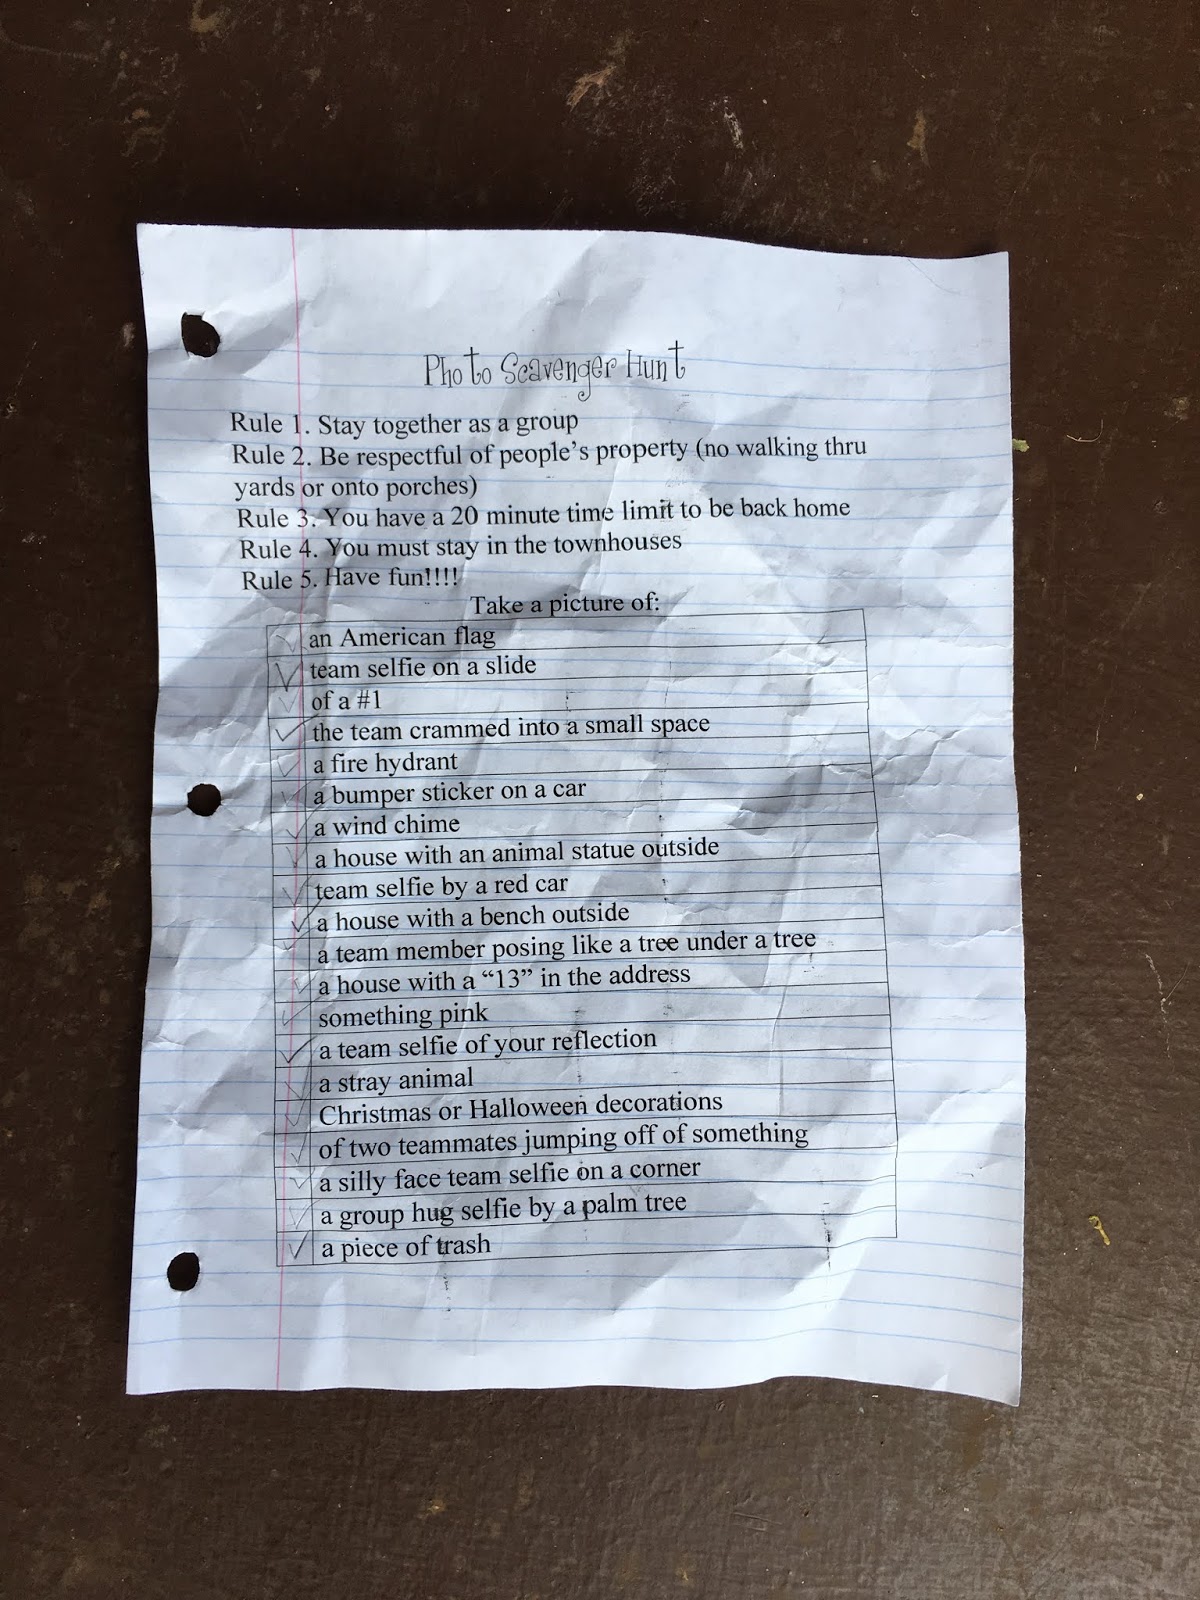 Photo Scavenger Hunt
Rule 1. Stay together as a group
Rule 2. Be respectful of people's property (no walking thru
yards or onto porches)
Rule 3. You have a 20 minute time limit to be back home
Rule 4. You must stay in the townhouses
Rule 5. Have fun!!!!
Take a picture of:
an American flag
team selfie on a slide
of a #1
the team crammed into a small space
a fire hydrant
a bumper sticker on a car
a wind chime
a house with an animal statue outside
team selfie by a red car
a house with a bench outside
a team member posing like a tree under a tree
a house with a “13” in the address
something pink
a team selfie of your reflection
a stray animal
Christmas or Halloween decorations
of two teammates jumping off of something
a silly face team selfie on a corner
a group hug selfie by a palm tree
a piece of trash